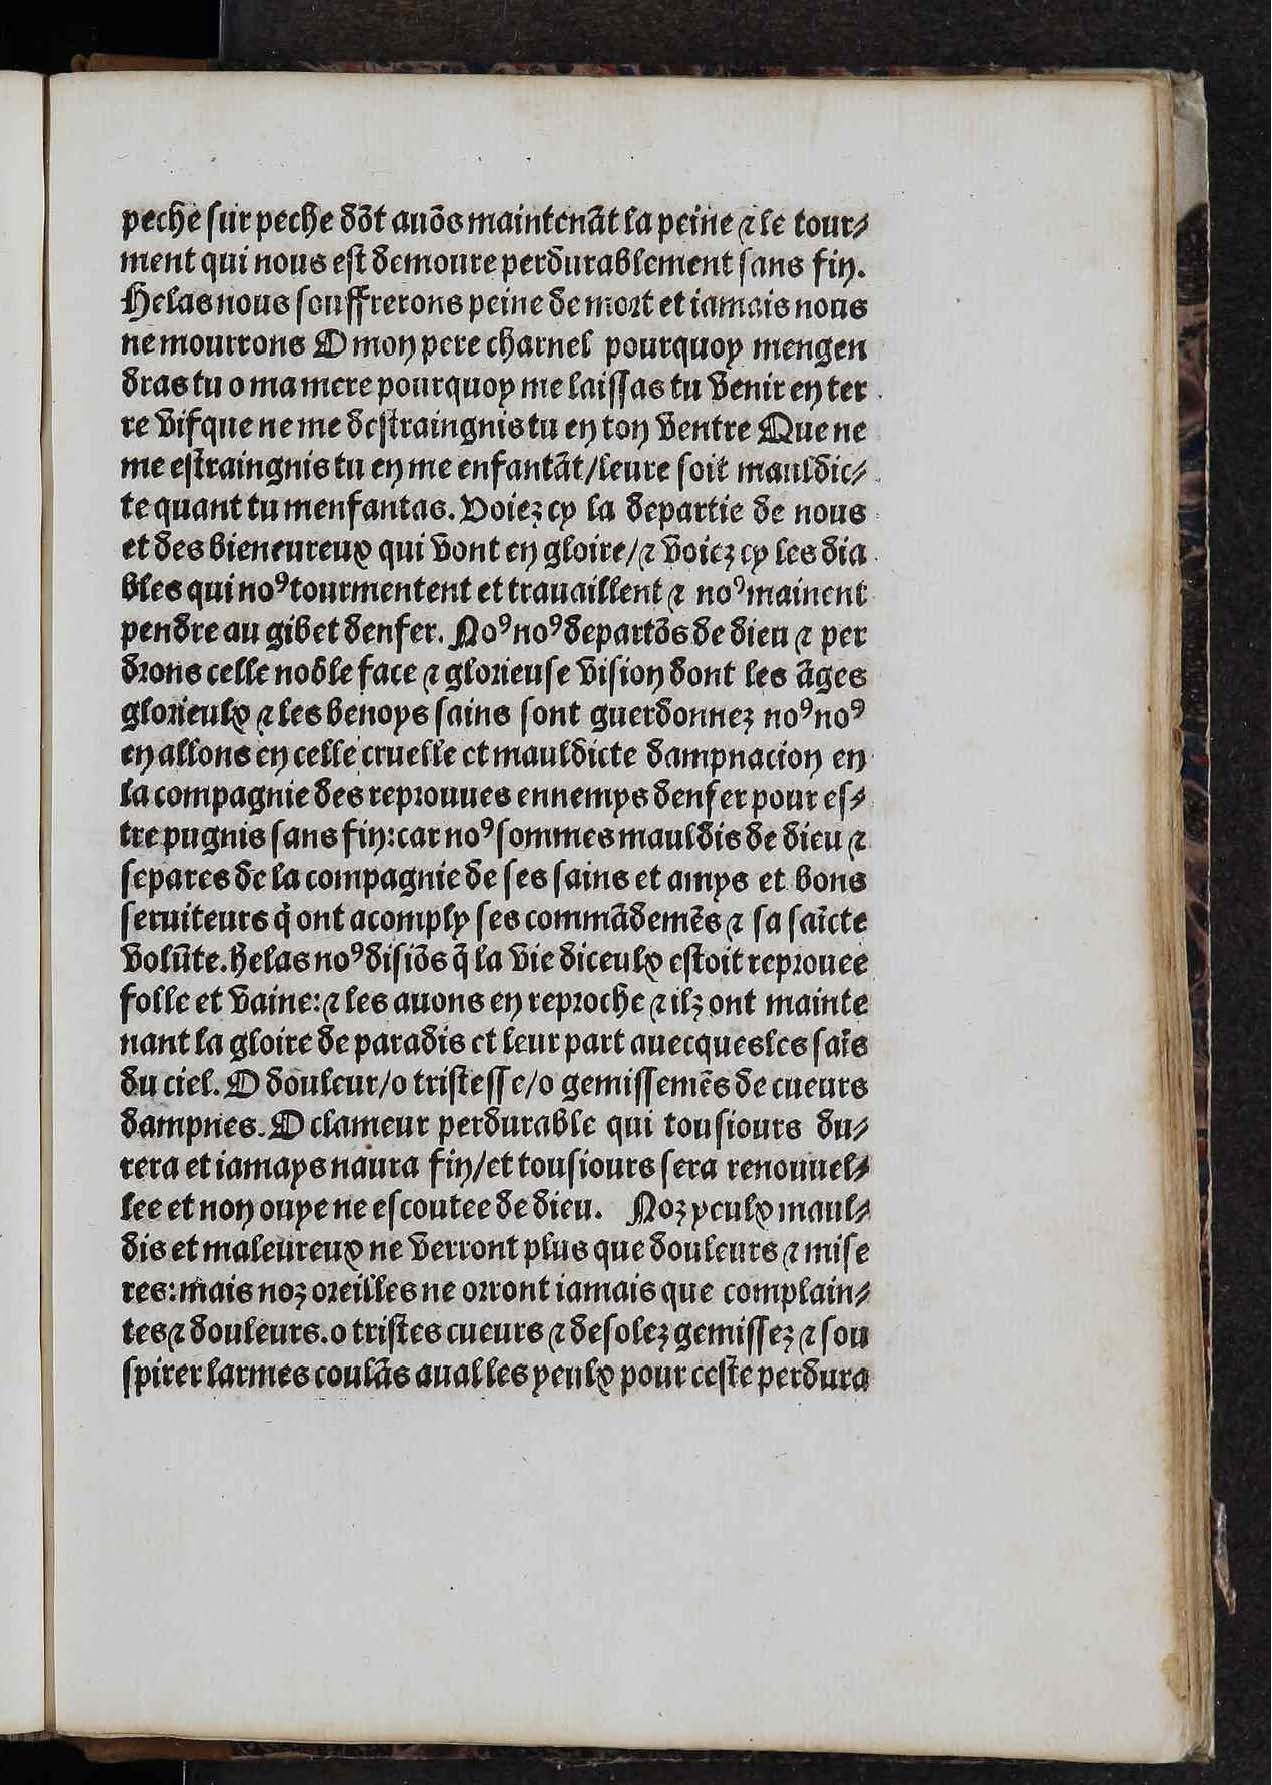 peche sur peche dõt auõs maintenãt la peine ⁊ le tour⸗
ment qui nous est demoure perdurablement sans fin.
Helas nous souffrerons peine de mort et iamais nous
ne mourrons O mon pere charnel pourquoy mengen
dras tu o ma mere pourquoy me laissas tu venir en ter
re vif que ne me destraingnis tu en ton ventre Que ne
me estraingnis tu en me enfantãt/leure soit mauldic⸗
te quant tu menfantas. Voiez cy la departie de nous
et des bieneureux qui vont en gloire/⁊ voiez cy les dia
bles qui noꝰ tourmentent et trauaillent ⁊ noꝰ mainent
pendre au gibet denfer. Noꝰ noꝰ departõs de dieu ⁊ per
drons celle noble face ⁊ glorieuse vision dont les ãges
glorieulx ⁊ les benoys sains sont guerdonnez noꝰ noꝰ
en allons en celle cruelle et mauldicte dampnacion en
la compagnie des reprouues ennemys denfer pour es⸗
tre pugnis sans fin: car noꝰ sommes mauldis de dieu ⁊
separes de la compagnie de ses sains et amys et bons
seruiteurs q̇ ont acomply ses commãdemẽs ⁊ sa saĩcte
volũte. helas noꝰ disiõs q̃ la vie diceulx estoit reprouee
folle et vaine: ⁊ les auons en reproche ⁊ ilz ont mainte
nant la gloire de paradis et leur part auecques les saĩs
du ciel. O douleur/o tristesse/o gemissemẽs de cueurs
dampnes. O clameur perdurable qui tousiours du⸗
rera et iamays naura fin/et tousiours sera renouuel⸗
lee et non ouye ne escoutee de dieu. Noz yeulx maul⸗
dis et maleureux ne verront plus que douleurs ⁊ mise
res: mais noz oreilles ne orront iamais que complain⸗
tes ⁊ douleurs. o tristes cueurs ⁊ desolez gemissez ⁊ sou
spirer larmes coulãs aual les yeulx pour ceste perdura